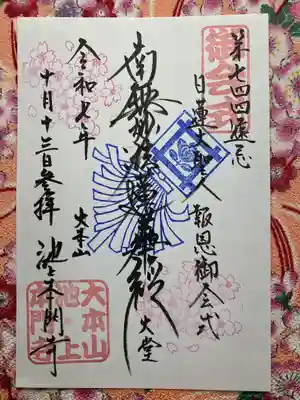 第七四四遠忌
御会式
日蓮大聖人 報恩御会式
南無妙法蓮華経
大堂
大本山
令和七年
十月十三日参拝 池上本門寺
大本山
池上
本門寺